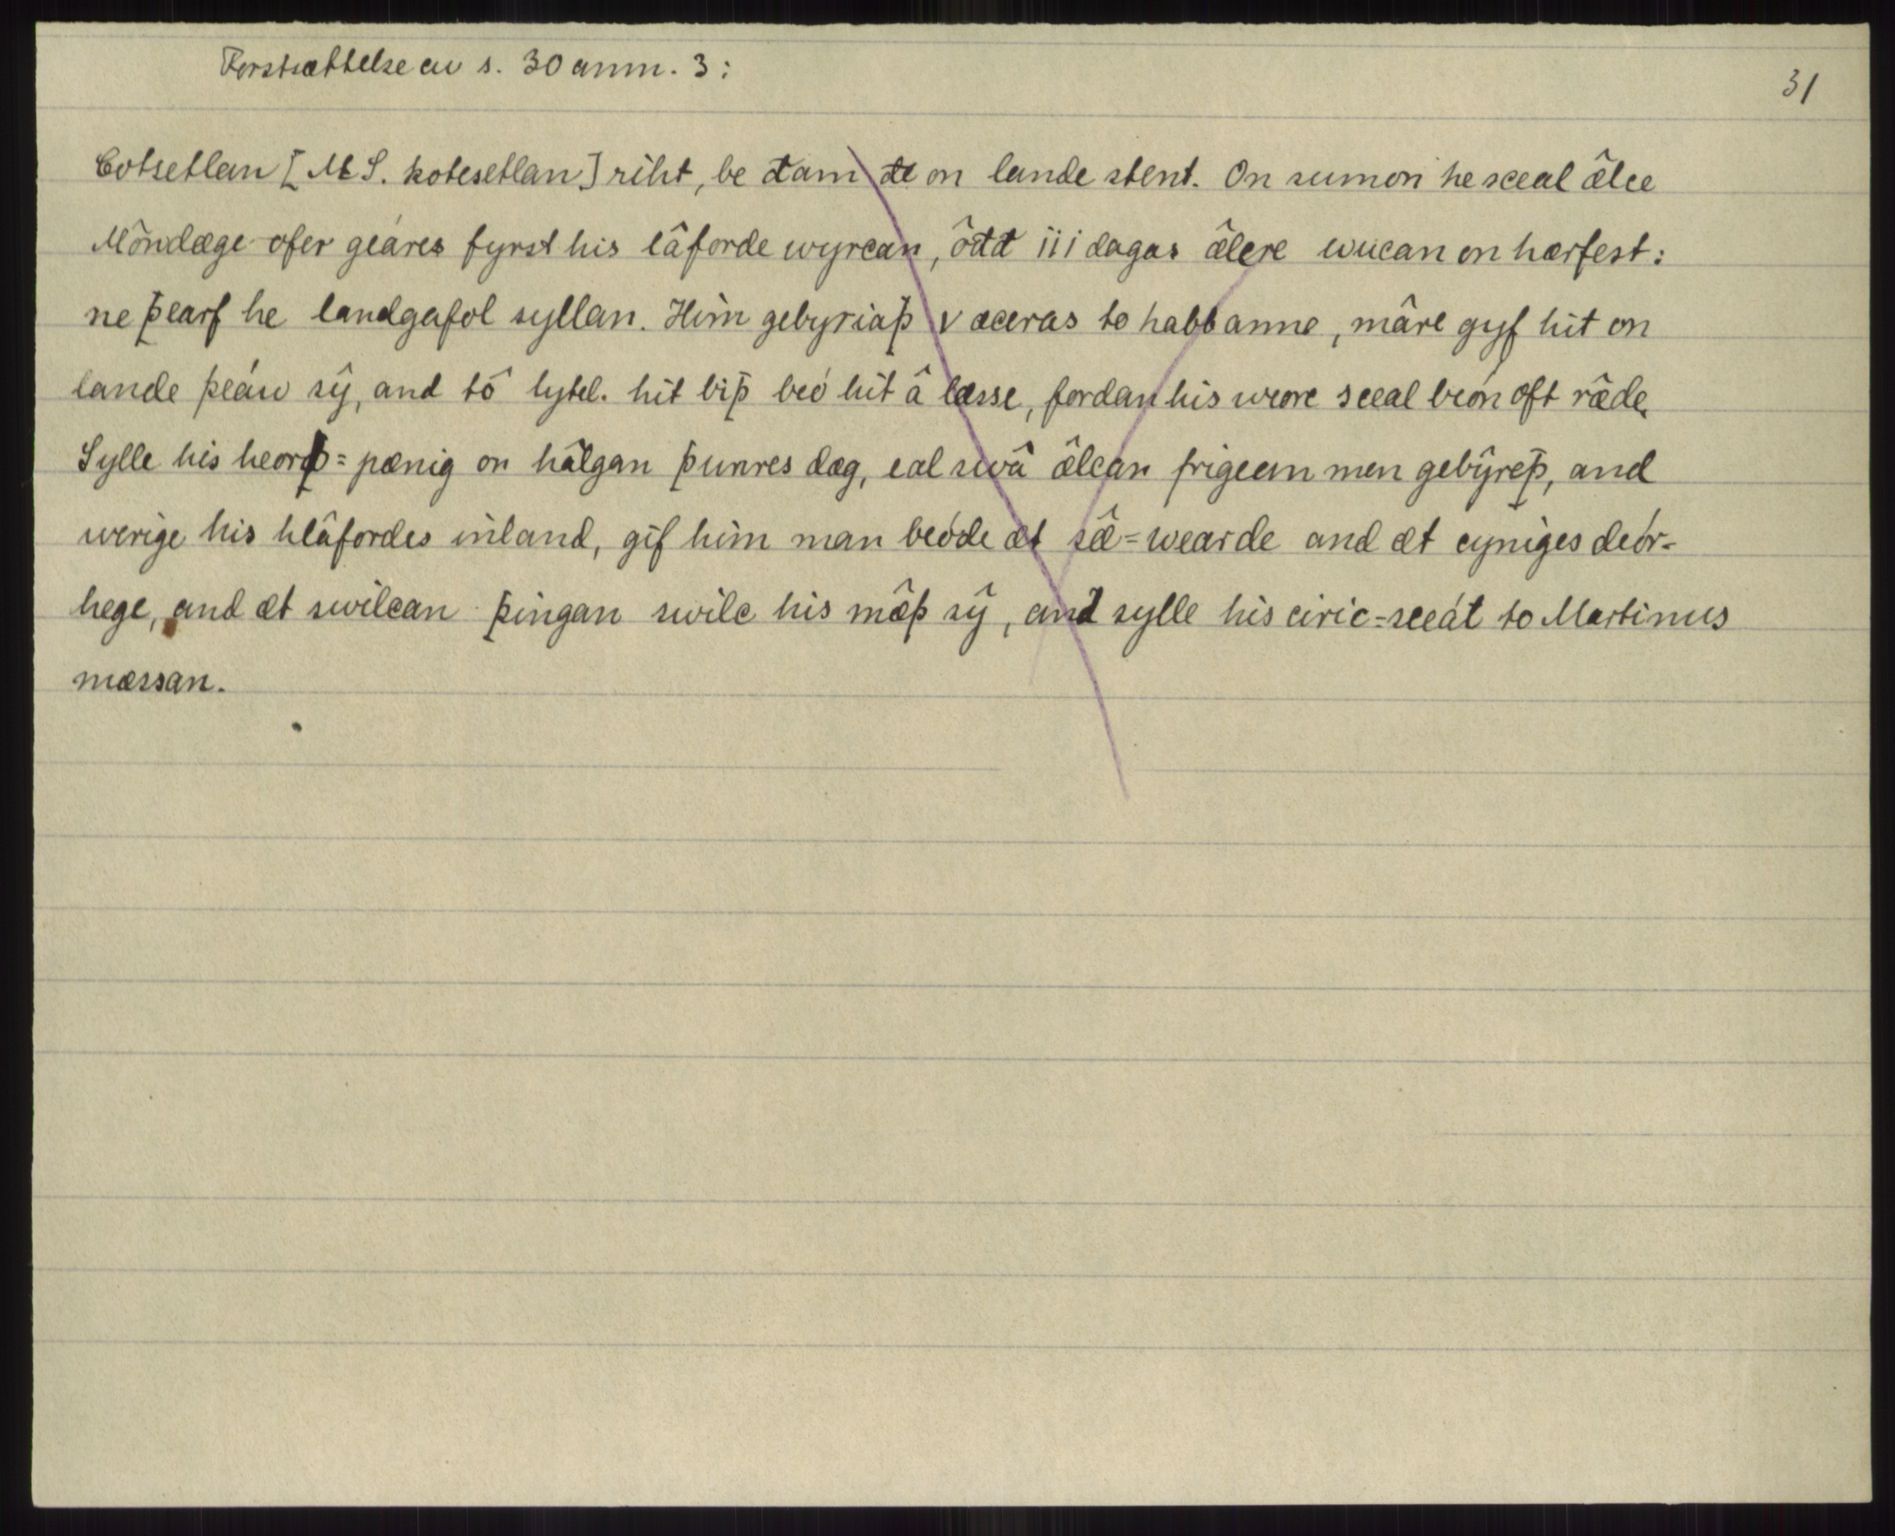 Forstsættelse av s. 30 anm. 3:
31
Cotsetlan [MS. kotesetlan] riht, be đam đe on lande stent. On sumon he sceal ælce
Môndæge ofer geáres fyrst his lâforde wyrcan, ôđđ iii dagas ælcre wucan on hærfest:
ne þearf he landgafol syllan. Him gebyriaþ v æceras to habbanne, mâre gyf hit on
lande þeáw sŷ, and tô lytel. hit biþ beó hit â læsse, fordan his weorc sceal beón oft ræde.
Sylle his heorþ=pænig on hâlgan þunres dæg, eal swâ ælcan frigean men gebŷreþ, and
werige his hlâfordes inland, gif him man beóde æt sæ̂=wearde and æt cyniges deór=
hege, and æt swilcan þingan swilc his mæ̂þ sŷ, and sylle his ciric=sceát to Martinus
mæssan.